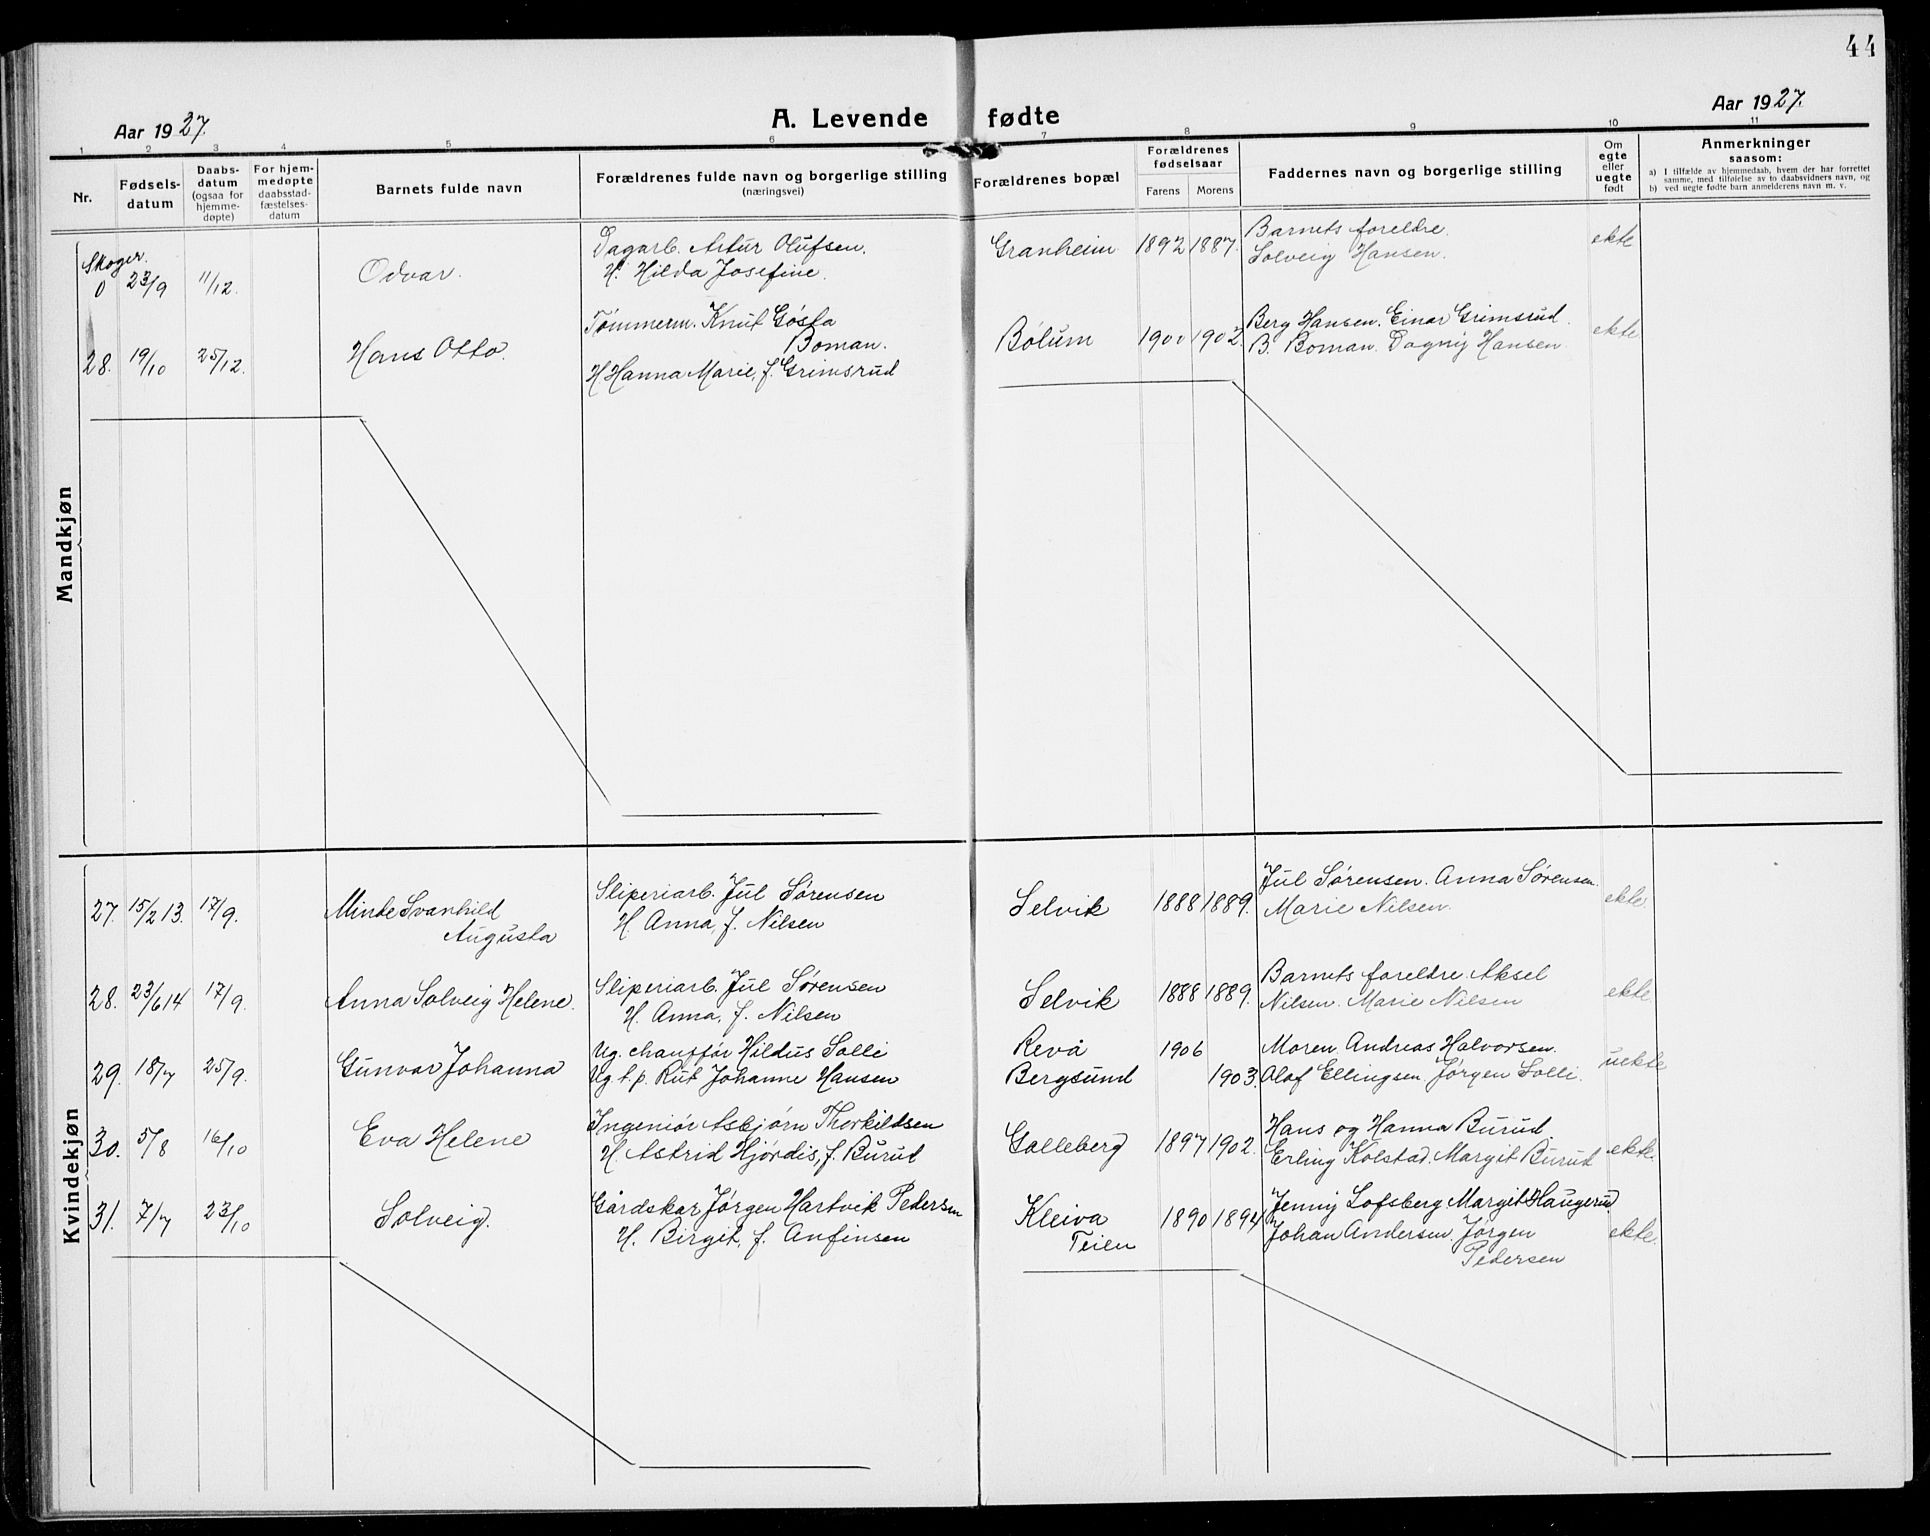 44
Aar 1927.
A. Levende fødte
Aar 1927.
1 2 3 4 5 6 7 8 9 10 11
Nr.
Fødsels-
datum
Daabs-
datum
(ogsaa for
hjemme-
døpte)
For hjem-
medøpte
daabsstad-
fæstelses-
datum
Barnets fulde navn
Forældrenes fulde navn og borgerlige stilling
(næringsvei)
Forældrenes bopæl
Forældrenes
fødselsaar
Farens Morens
Faddernes navn og borgerlige stilling
Om
egte
eller
uegte
født
Anmerkninger
saasom:
a) I tilfælde av hjemmedaab, hvem der har forrettet
samme, med tilføielse av to daabsvidners navn, og
b) ved uegte fødte barn anmelderens navn m. v.
Mandkjøn
Skoger.
0 23/9 11/12. Odvar.
Dagarb. Artur Olufsen.
H. Hilda Josefine.
Granheim 1892 1887.
Barnets foreldre.
Solveig Hansen.
ekte
28. 19/10 25/12. Hans Otto.
Tømmerm. Knut Gøsta
Boman.
H Hanna Marie, f. Grimsrud
Bolum 1900 1902.
Berg Hansen. Einar Grimsrud.
B. Boman. Dagny Hansen
ekte
Kvindekjøn
27. 15/2 13. 17/9. Minde Svanhild
Augusta
Sliperiarb. Jul Sørensen
H. Anna, f. Nilsen
Selvik 1888 1889.
Jul Sørensen. Anna Sørensen.
Marie Nilsen.
ekte.
28. 23/6 14 17/9. Anna Solveig Helene.
Sliperiarb. Jul Sørensen
H. Anna, f. Nilsen
Selvik 1888 1889.
Barnets foreldre. Aksel
Nilsen. Marie Nilsen
ekte.
29. 18/7 25/9. Gunvor Johanna
Ug. chauffør Hildus Solli
Ug. t.p. Rut Johanne Hansen
Revå 1906
Bergsund 1903.
Moren. Andreas Halvorsen.
Olaf Ellingsen. Jørgen Solli.
uekte
30. 5/8 16/10 Eva Helene
Ingeniør Asbjørn Thorkildsen
H. Astrid Hjørdis, f. Burud
Galleberg 1897 1902.
Hans og Hanna Burud
Erling Kolstad. Margit Burud
ekte.
31. 7/7 23/10 Solveig.
Gårdskar Jørgen Hartvik Pedersen
H. Birgit, f. Anfinsen
Kleiva
Teien
1890 1894
Jenny Lofsberg Margit Haugerud
Johan Andersen. Jørgen
Pedersen
ekte.